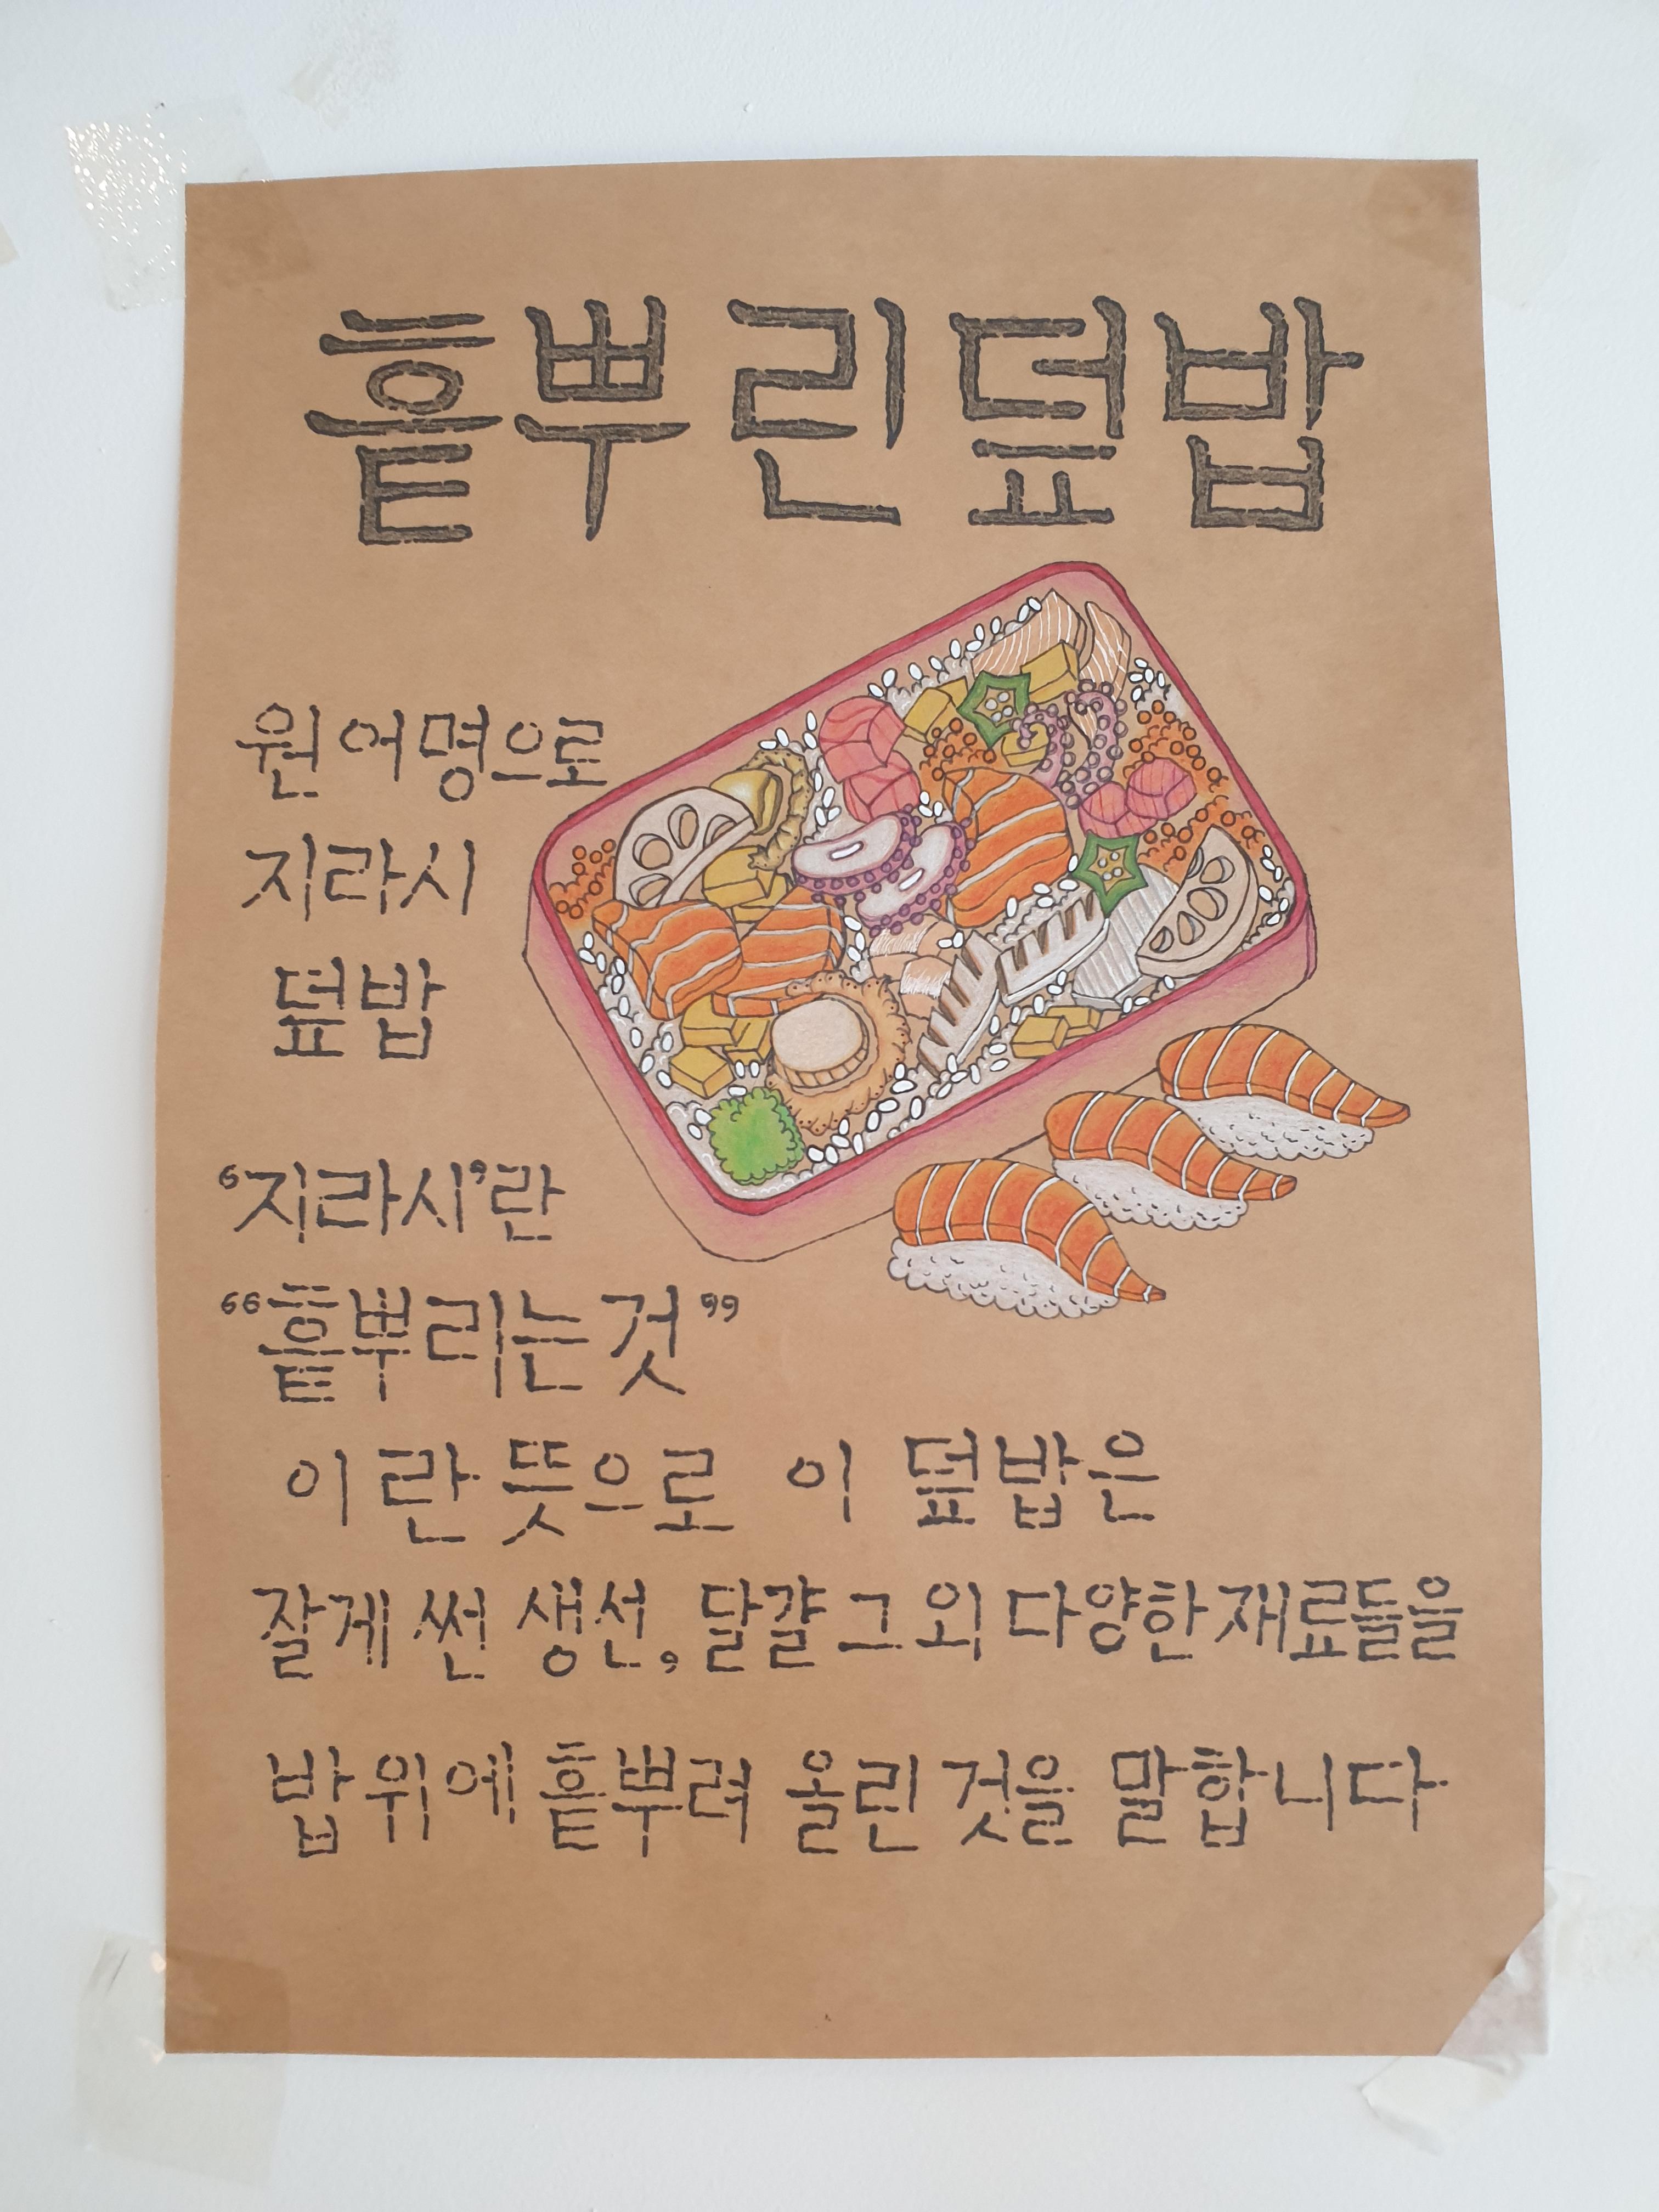 흩뿌린덮밥
원어명으로
지라시
덮밥
‘지라시’란
“흩뿌리는것”
이란 뜻으로 이 덮밥은
잘게 썬 생선, 달걀 그 외 다양한 재료들을
밥 위에 흩뿌려 올린 것을 말합니다